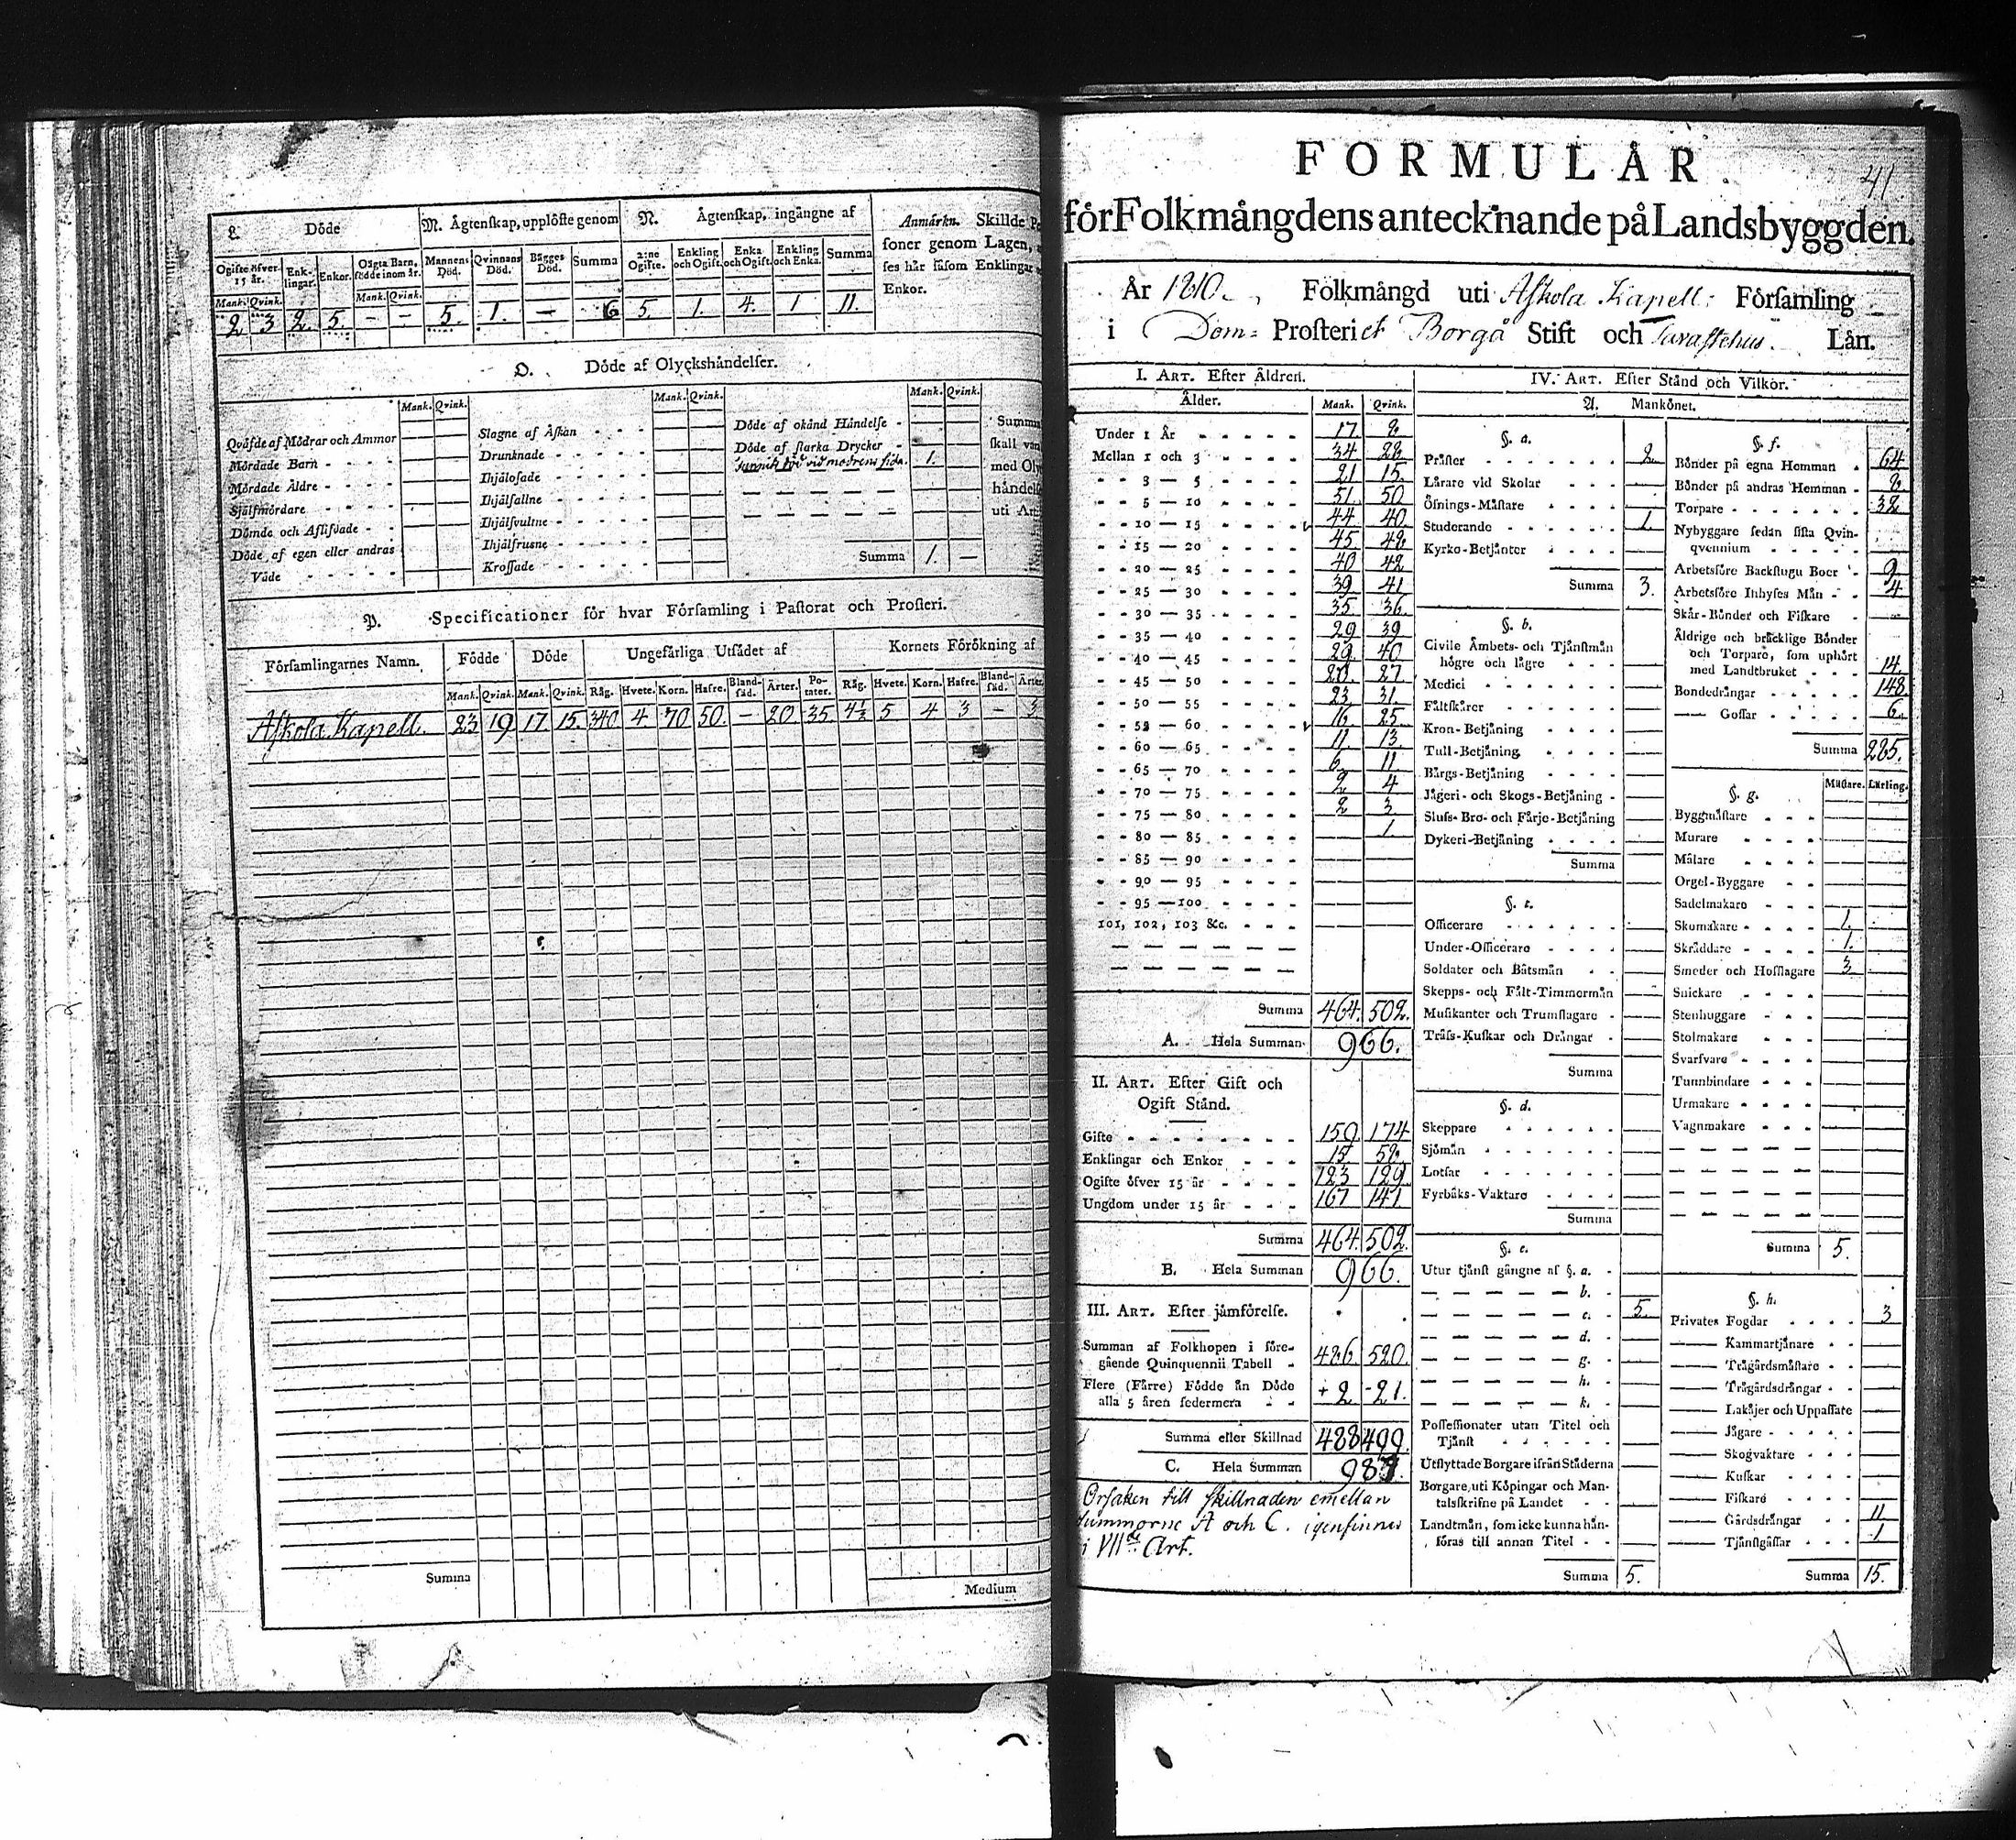 L. Döde
Ogifte öfver 15 år. Enk-lingar. Enkor. Oägta Barn, födde inom år.
Mank. Qvink. Mank. Qvink.
2 3 2. 5. — —
M. Ägtenskap, upplöste genom
Mannens Död. Qvinnans Död. Bägges Död. Summa
5. 1. — 6
N. Ägtenskap, ingångne af
2:ne Ogifte. Enkling och Ogift. Enka och Ogift. Enkling och Enka. Summa
5. 1. 4. 1 11.
Anmärkn. Skillde
soner genom Lagen,
ses här såsom Enklingar
Enkor.
O. Döde af Olyckshändelser.
Mank. Qvink.
Qväfde af Mödrar och Ammor
Mördade Barn
Mördade Äldre
Självmördare
Dömde och Aflifvade
Döde af egen eller andras
Våde
Mank. Qvink.
Slagne af Åskan
Drunknade
Ihjälosade
Ihjälfallne
Ihjälsvultne
Ihjälfrusne
Krossade
Mank. Qvink.
Döde af okänd Händelse
Döde af starka Drycker
vid modrens sida. 1.
Summa 1. —
Summa
skall
med
händel
uti
P. Specificationer för hvar Församling i Pastorat och Prosteri.
Församlingarnes Namn. Födde Döde Ungefärliga Utsådet af Kornets Förökning af
Mank. Qvink. Mank. Qvink. Råg. Hvete. Korn. Hafre. Bland-säd. Ärter. Po-tater. Råg. Hvete. Korn. Hafre. Bland-säd. Ärter.
Askola Kapell. 23 19 17. 15. 340 4 70 50. — 20 35 4½ 5 4 3 — 3.
Summa
Medium
41.
FORMULÄR
för Folkmängdens antecknande på Landsbyggden.
År 1810. Folkmängd uti Askola Kapell: Församling
i Dom= Prosteriet Borgå Stift och Tavastehus. Län.
I. ART. Efter Åldren.
Ålder. Mank. Qvink.
Under 1 År 17 8.
Mellan 1 och 3 34 28.
3 — 5 21 15.
5 — 10 51. 50
10 — 15 44 40.
15 — 20 45 48.
20 — 25 40 42
25 — 30 39 41
30 — 35 35 36.
35 — 40 29 39
40 — 45 29. 40
45 — 50 20. 27.
50 — 55 23 31.
55 — 60 16 25.
60 — 65 11. 13.
65 — 70 6. 11
70 — 75 2 4
75 — 80 2 3.
80 — 85 1
85 — 90
90 — 95
95 — 100
101, 102, 103 &c.
Summa 464. 502.
A. Hela Summan 966.
II. ART. Efter Gift och
Ogift Stånd.
Gifte 159 174
Enklingar och Enkor 15 58.
Ogifte öfver 15 år 123 129.
Ungdom under 15 år 167 141.
Summa 464. 502.
B. Hela Summan 966.
III. ART. Efter jämförelse.
Summan af Folkhopen i före-
gående Quinquennii Tabell 486. 520.
Flere (Färre) Födde än Döde
alla 5 åren sedermera + 2 - 21.
Summa eller Skillnad 488 499.
C. Hela Summan 987.
Orsaken till skillnaden emellan
summorne A och C. igenfinnes
i VII:de Art.
IV. ART. Efter Stånd och Vilkor.
A. Mankönet.
§. a.
Präster 2
Lärare vid Skolar
Öfnings-Mästare
Studerande 1.
Kyrko-Betjänter
Summa 3.
§. b.
Civile Ämbets- och Tjänstmän
högre och lägre
Medici
Fältskärer
Kron-Betjäning
Tull-Betjäning
Bärgs-Betjäning
Jägeri- och Skogs-Betjäning
Sluss- Bro- och Färje-Betjäning
Dykeri-Betjäning
Summa
§. c.
Officerare
Under-Officerare
Soldater och Båtsmän
Skepps- och Fält-Timmermän
Musikanter och Trumslagare
Träss-Kuskar och Drängar
Summa
§. d.
Skeppare
Sjömän
Lotsar
Fyrbåks-Vaktare
Summa
§. e.
Utur tjänst gångne af §. a.
b.
c. 5.
d.
g.
h.
k.
Possessionater utan Titel och
Tjänst
Utflyttade Borgare ifrån Städerna
Borgare uti Köpingar och Man-
talsskrifne på Landet
Landtmän, som icke kunna hän-
föras till annan Titel
Summa 5.
§. f.
Bönder på egna Hemman 64
Bönder på andras Hemman 8.
Torpare 32
Nybyggare sedan sista Qvin-
qvennium
Arbetsföre Backstugu Boer 9
Arbetsföre Inhyses Män 4
Skär-Bönder och Fiskare
Äldrige och bräcklige Bönder
och Torpare, som uphört
med Landtbruket 14.
Bondedrängar 148
Gossar 6.
Summa 285.
§. g. Mästare. Lärling.
Byggmästare
Murare
Målare
Orgel-Byggare
Sadelmakare
Skomakare 1.
Skräddare 1.
Smeder och Hofslagare 3.
Snickare
Stenhuggare
Stolmakare
Svarfvare
Tunnbindare
Urmakare
Vagnmakare
Summa 5.
§. h.
Privates Fogdar 3
Kammartjänare
Trägårdsmästare
Trägårdsdrängar
Lakäjer och Uppassare
Jägare
Skogvaktare
Kuskar
Fiskare
Gårdsdrängar 11
Tjänstgässar 1
Summa 15.